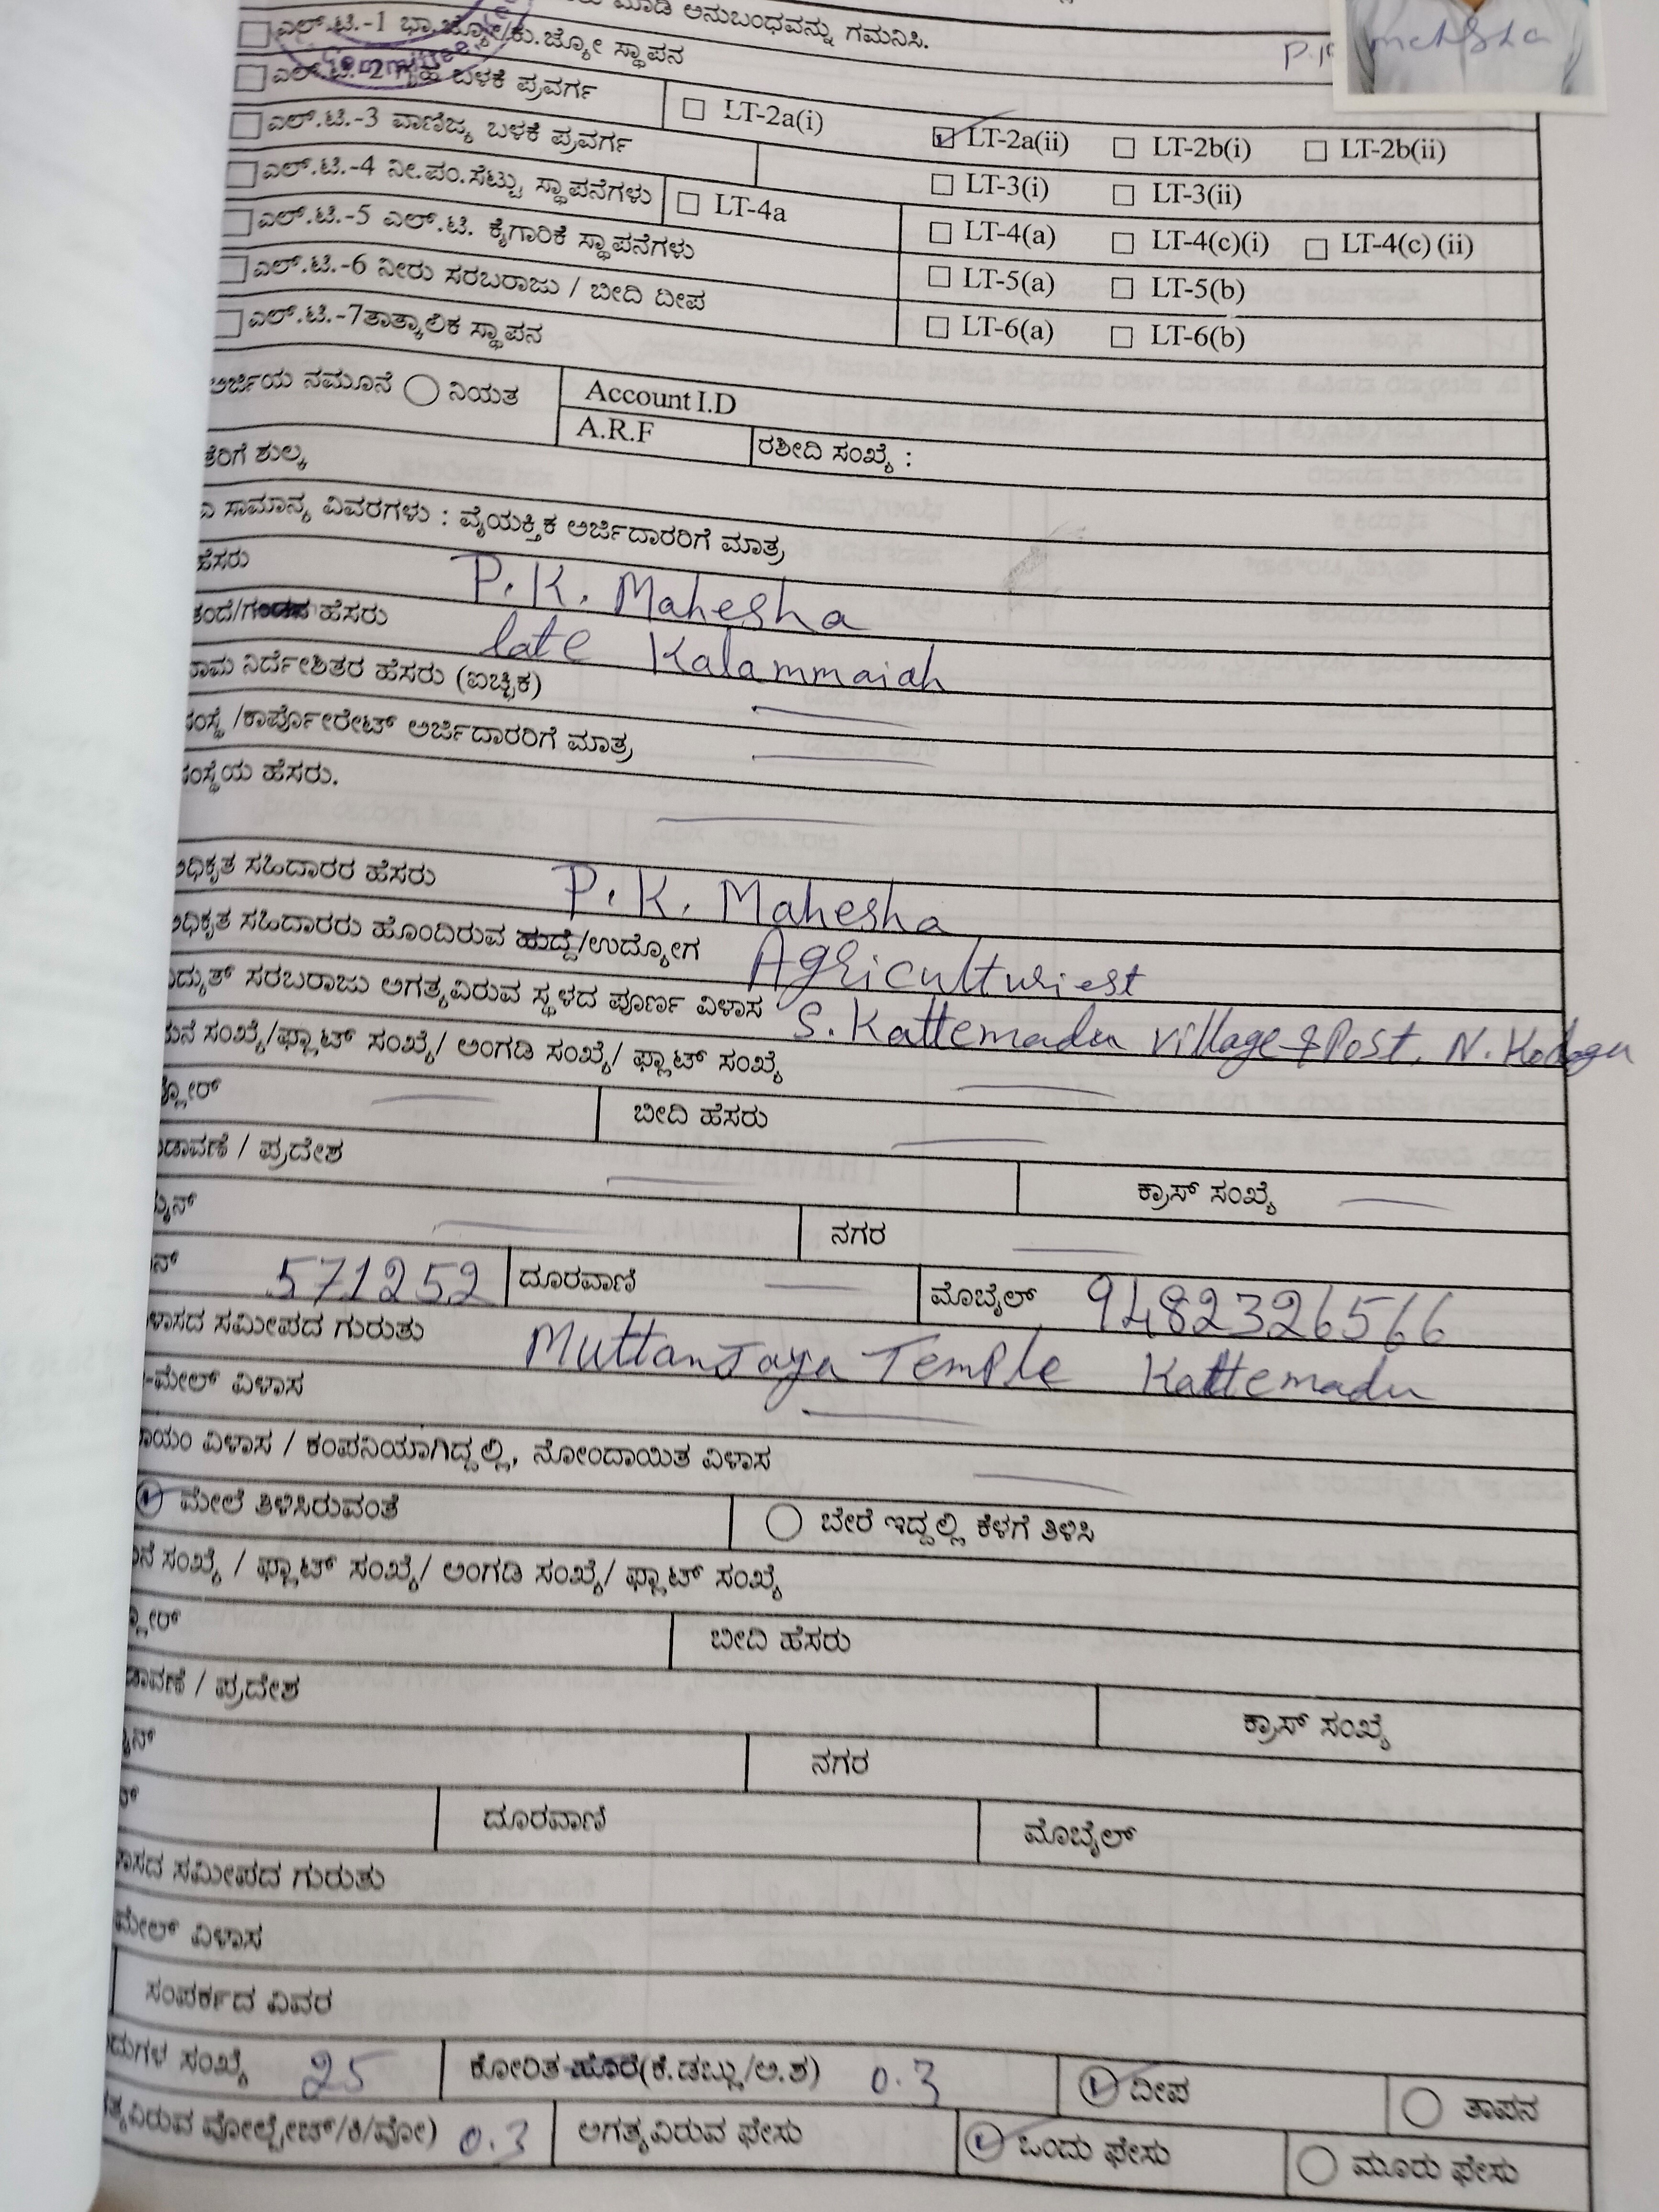 ಮಾಡಿ ಅನುಬಂಧವನ್ನು ಗಮನಿಸಿ.
P.K
mahesha
ಎಲ್.ಟಿ.-1 ಭಾ.ಜ್ಯೋ/ಕು.ಜ್ಯೋ ಸ್ಥಾಪನ
ಎಲ್.ಟಿ. 2 ಗೃಹ ಬಳಕೆ ಪ್ರವರ್ಗ LT-2a(i) LT-2a(ii) LT-2b(i) LT-2b(ii)
ಎಲ್.ಟಿ.-3 ವಾಣಿಜ್ಯ ಬಳಕೆ ಪ್ರವರ್ಗ LT-3(i) LT-3(ii)
ಎಲ್.ಟಿ.-4 ನೀ.ಪಂ.ಸೆಟ್ಟು ಸ್ಥಾಪನೆಗಳು LT-4a LT-4(a) LT-4(c)(i) LT-4(c)(ii)
ಎಲ್.ಟಿ.-5 ಎಲ್.ಟಿ. ಕೈಗಾರಿಕೆ ಸ್ಥಾಪನೆಗಳು LT-5(a) LT-5(b)
ಎಲ್.ಟಿ.-6 ನೀರು ಸರಬರಾಜು / ಬೀದಿ ದೀಪ LT-6(a) LT-6(b)
ಎಲ್.ಟಿ.-7ತಾತ್ಕಾಲಿಕ ಸ್ಥಾಪನ
ಅರ್ಜಿಯ ನಮೂನೆ ನಿಯತ Account I.D
A.R.F ರಶೀದಿ ಸಂಖ್ಯೆ :
ಶುಲ್ಕ
ಸಾಮಾನ್ಯ ವಿವರಗಳು : ವೈಯಕ್ತಿಕ ಅರ್ಜಿದಾರರಿಗೆ ಮಾತ್ರ
ಹೆಸರು P. K. Mahesha
ತಂದೆ/ಗಂಡನ ಹೆಸರು late Kalammaiah
ನಾಮ ನಿರ್ದೇಶಿತರ ಹೆಸರು (ಐಚ್ಛಿಕ)
ಸಂಸ್ಥೆ /ಕಾರ್ಪೋರೇಟ್ ಅರ್ಜಿದಾರರಿಗೆ ಮಾತ್ರ
ಸಂಸ್ಥೆಯ ಹೆಸರು.
ಅಧಿಕೃತ ಸಹಿದಾರರ ಹೆಸರು P. K. Mahesha
ಅಧಿಕೃತ ಸಹಿದಾರರು ಹೊಂದಿರುವ ಹುದ್ದೆ/ಉದ್ಯೋಗ Agriculturiest
ವಿದ್ಯುತ್ ಸರಬರಾಜು ಅಗತ್ಯವಿರುವ ಸ್ಥಳದ ಪೂರ್ಣ ವಿಳಾಸ S. Kattemadu village & Post, N. Kodagu
ಮನೆ ಸಂಖ್ಯೆ/ಫ್ಲಾಟ್ ಸಂಖ್ಯೆ/ ಅಂಗಡಿ ಸಂಖ್ಯೆ/ ಫ್ಲಾಟ್ ಸಂಖ್ಯೆ
ಫ್ಲೋರ್ ಬೀದಿ ಹೆಸರು
ಬಡಾವಣೆ / ಪ್ರದೇಶ ಕ್ರಾಸ್ ಸಂಖ್ಯೆ
ಮೈನ್ ನಗರ
571252 ದೂರವಾಣಿ ಮೊಬೈಲ್ 9482326566
ವಿಳಾಸದ ಸಮೀಪದ ಗುರುತು Muttanjaya Temple Kattemadu
ಇ-ಮೇಲ್ ವಿಳಾಸ
ಖಾಯಂ ವಿಳಾಸ / ಕಂಪನಿಯಾಗಿದ್ದಲ್ಲಿ, ನೋಂದಾಯಿತ ವಿಳಾಸ
ಮೇಲೆ ತಿಳಿಸಿರುವಂತೆ ಬೇರೆ ಇದ್ದಲ್ಲಿ ಕೆಳಗೆ ತಿಳಿಸಿ
ಮನೆ ಸಂಖ್ಯೆ / ಫ್ಲಾಟ್ ಸಂಖ್ಯೆ/ ಅಂಗಡಿ ಸಂಖ್ಯೆ/ ಫ್ಲಾಟ್ ಸಂಖ್ಯೆ
ಫ್ಲೋರ್ ಬೀದಿ ಹೆಸರು
ಬಡಾವಣೆ / ಪ್ರದೇಶ ಕ್ರಾಸ್ ಸಂಖ್ಯೆ
ಮೈನ್ ನಗರ
ದೂರವಾಣಿ ಮೊಬೈಲ್
ವಿಳಾಸದ ಸಮೀಪದ ಗುರುತು
ಮೇಲ್ ವಿಳಾಸ
ಸಂಪರ್ಕದ ವಿವರ
ಸಂಖ್ಯೆ 25 ಕೋರಿತ ಹೊರೆ(ಕೆ.ಡಬ್ಲು/ಅ.ಶ) 0.3 ದೀಪ ತಾಪನ
ಅಗತ್ಯವಿರುವ ವೋಲ್ಟೇಚ್/ಕಿ/ವೋ) 0.3 ಅಗತ್ಯವಿರುವ ಫೇಸು ಒಂದು ಫೇಸು ಮೂರು ಫೇಸು